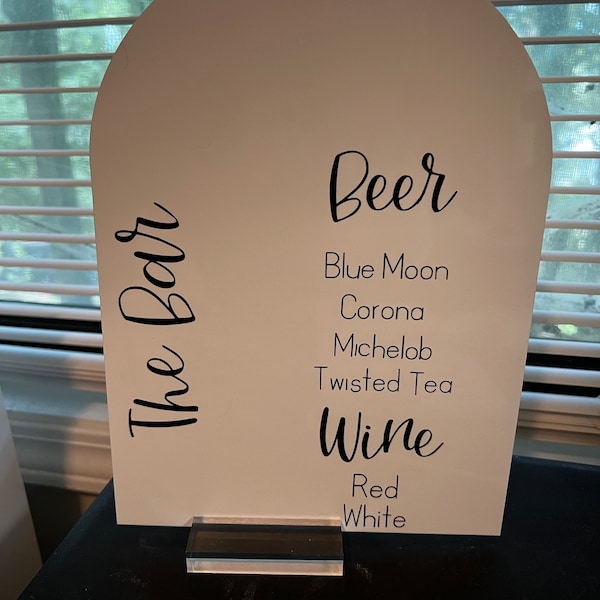 The Bar
Beer
Blue Moon
Corona
Michelob
Twisted Tea
Wine
Red
White